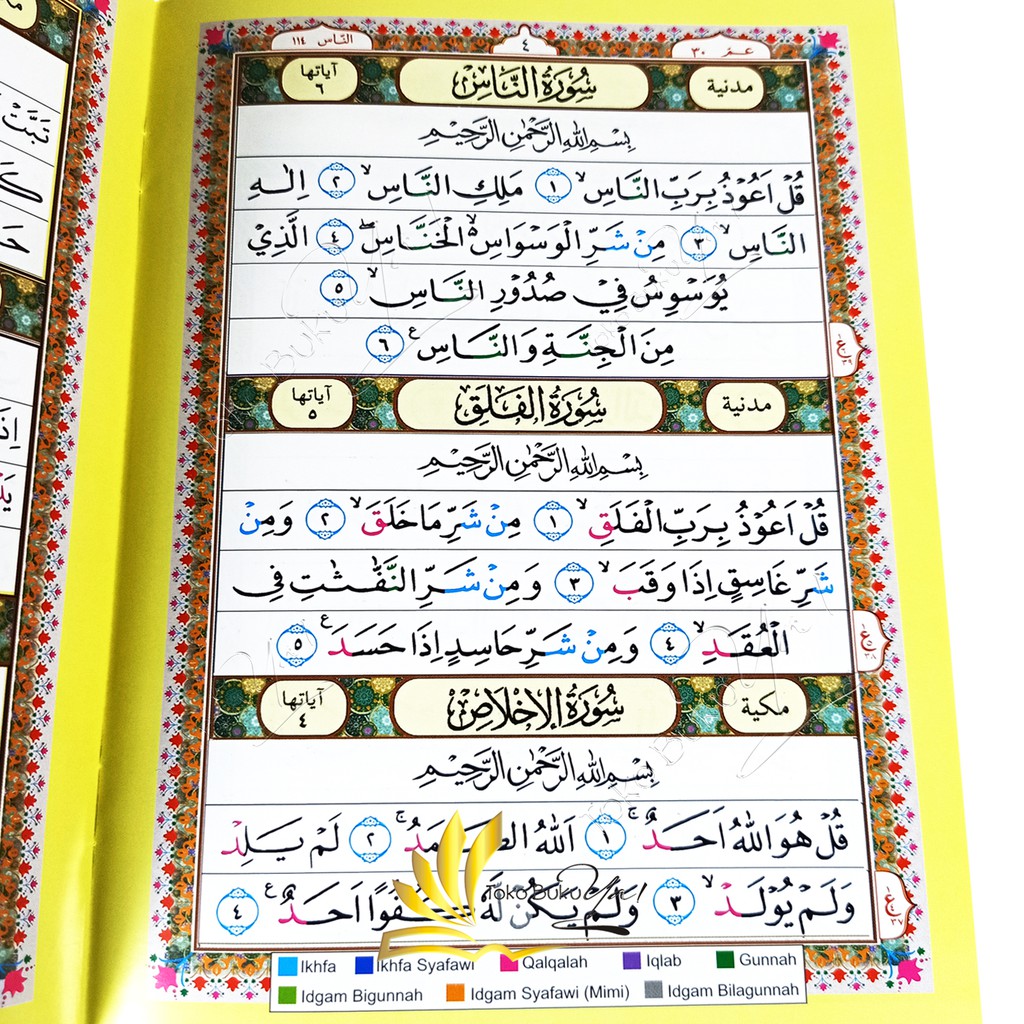 عم ٣٠
٤
الناس ١١٤
مدنية
سُورَةُ النَّاسِ
آياتها ٦
بِسْمِ اللهِ الرَّحْمٰنِ الرَّحِيْمِ
قُلْ اَعُوْذُ بِرَبِّ النَّاسِۙ ١ مَلِكِ النَّاسِۙ ٢ اِلٰهِ
النَّاسِۙ ٣ مِنْ شَرِّ الْوَسْوَاسِ ەۙ الْخَنَّاسِۖ ٤ الَّذِيْ
يُوَسْوِسُ فِيْ صُدُوْرِ النَّاسِۙ ٥
مِنَ الْجِنَّةِ وَالنَّاسِ ࣖ ٦
ع
٣٩
مدنية
سُورَةُ الْفَلَقِ
آياتها ٥
بِسْمِ اللهِ الرَّحْمٰنِ الرَّحِيْمِ
قُلْ اَعُوْذُ بِرَبِّ الْفَلَقِۙ ١ مِنْ شَرِّ مَا خَلَقَۙ ٢ وَمِنْ
شَرِّ غَاسِقٍ اِذَا وَقَبَۙ ٣ وَمِنْ شَرِّ النَّفّٰثٰتِ فِى
الْعُقَدِۙ ٤ وَمِنْ شَرِّ حَاسِدٍ اِذَا حَسَدَ ࣖ ٥
ع
٣٨
مكية
سُورَةُ الْاِخْلَاصِ
آياتها ٤
بِسْمِ اللهِ الرَّحْمٰنِ الرَّحِيْمِ
قُلْ هُوَ اللهُ اَحَدٌۚ ١ اَللهُ الصَّمَدُۚ ٢ لَمْ يَلِدْ
وَلَمْ يُوْلَدْۙ ٣ وَلَمْ يَكُنْ لَّهٗ كُفُوًا اَحَدٌ ࣖ ٤
ع
٣٧
Toko Buku Yuri
Ikhfa Ikhfa Syafawi Qalqalah Iqlab Gunnah
Idgam Bigunnah Idgam Syafawi (Mimi) Idgam Bilagunnah